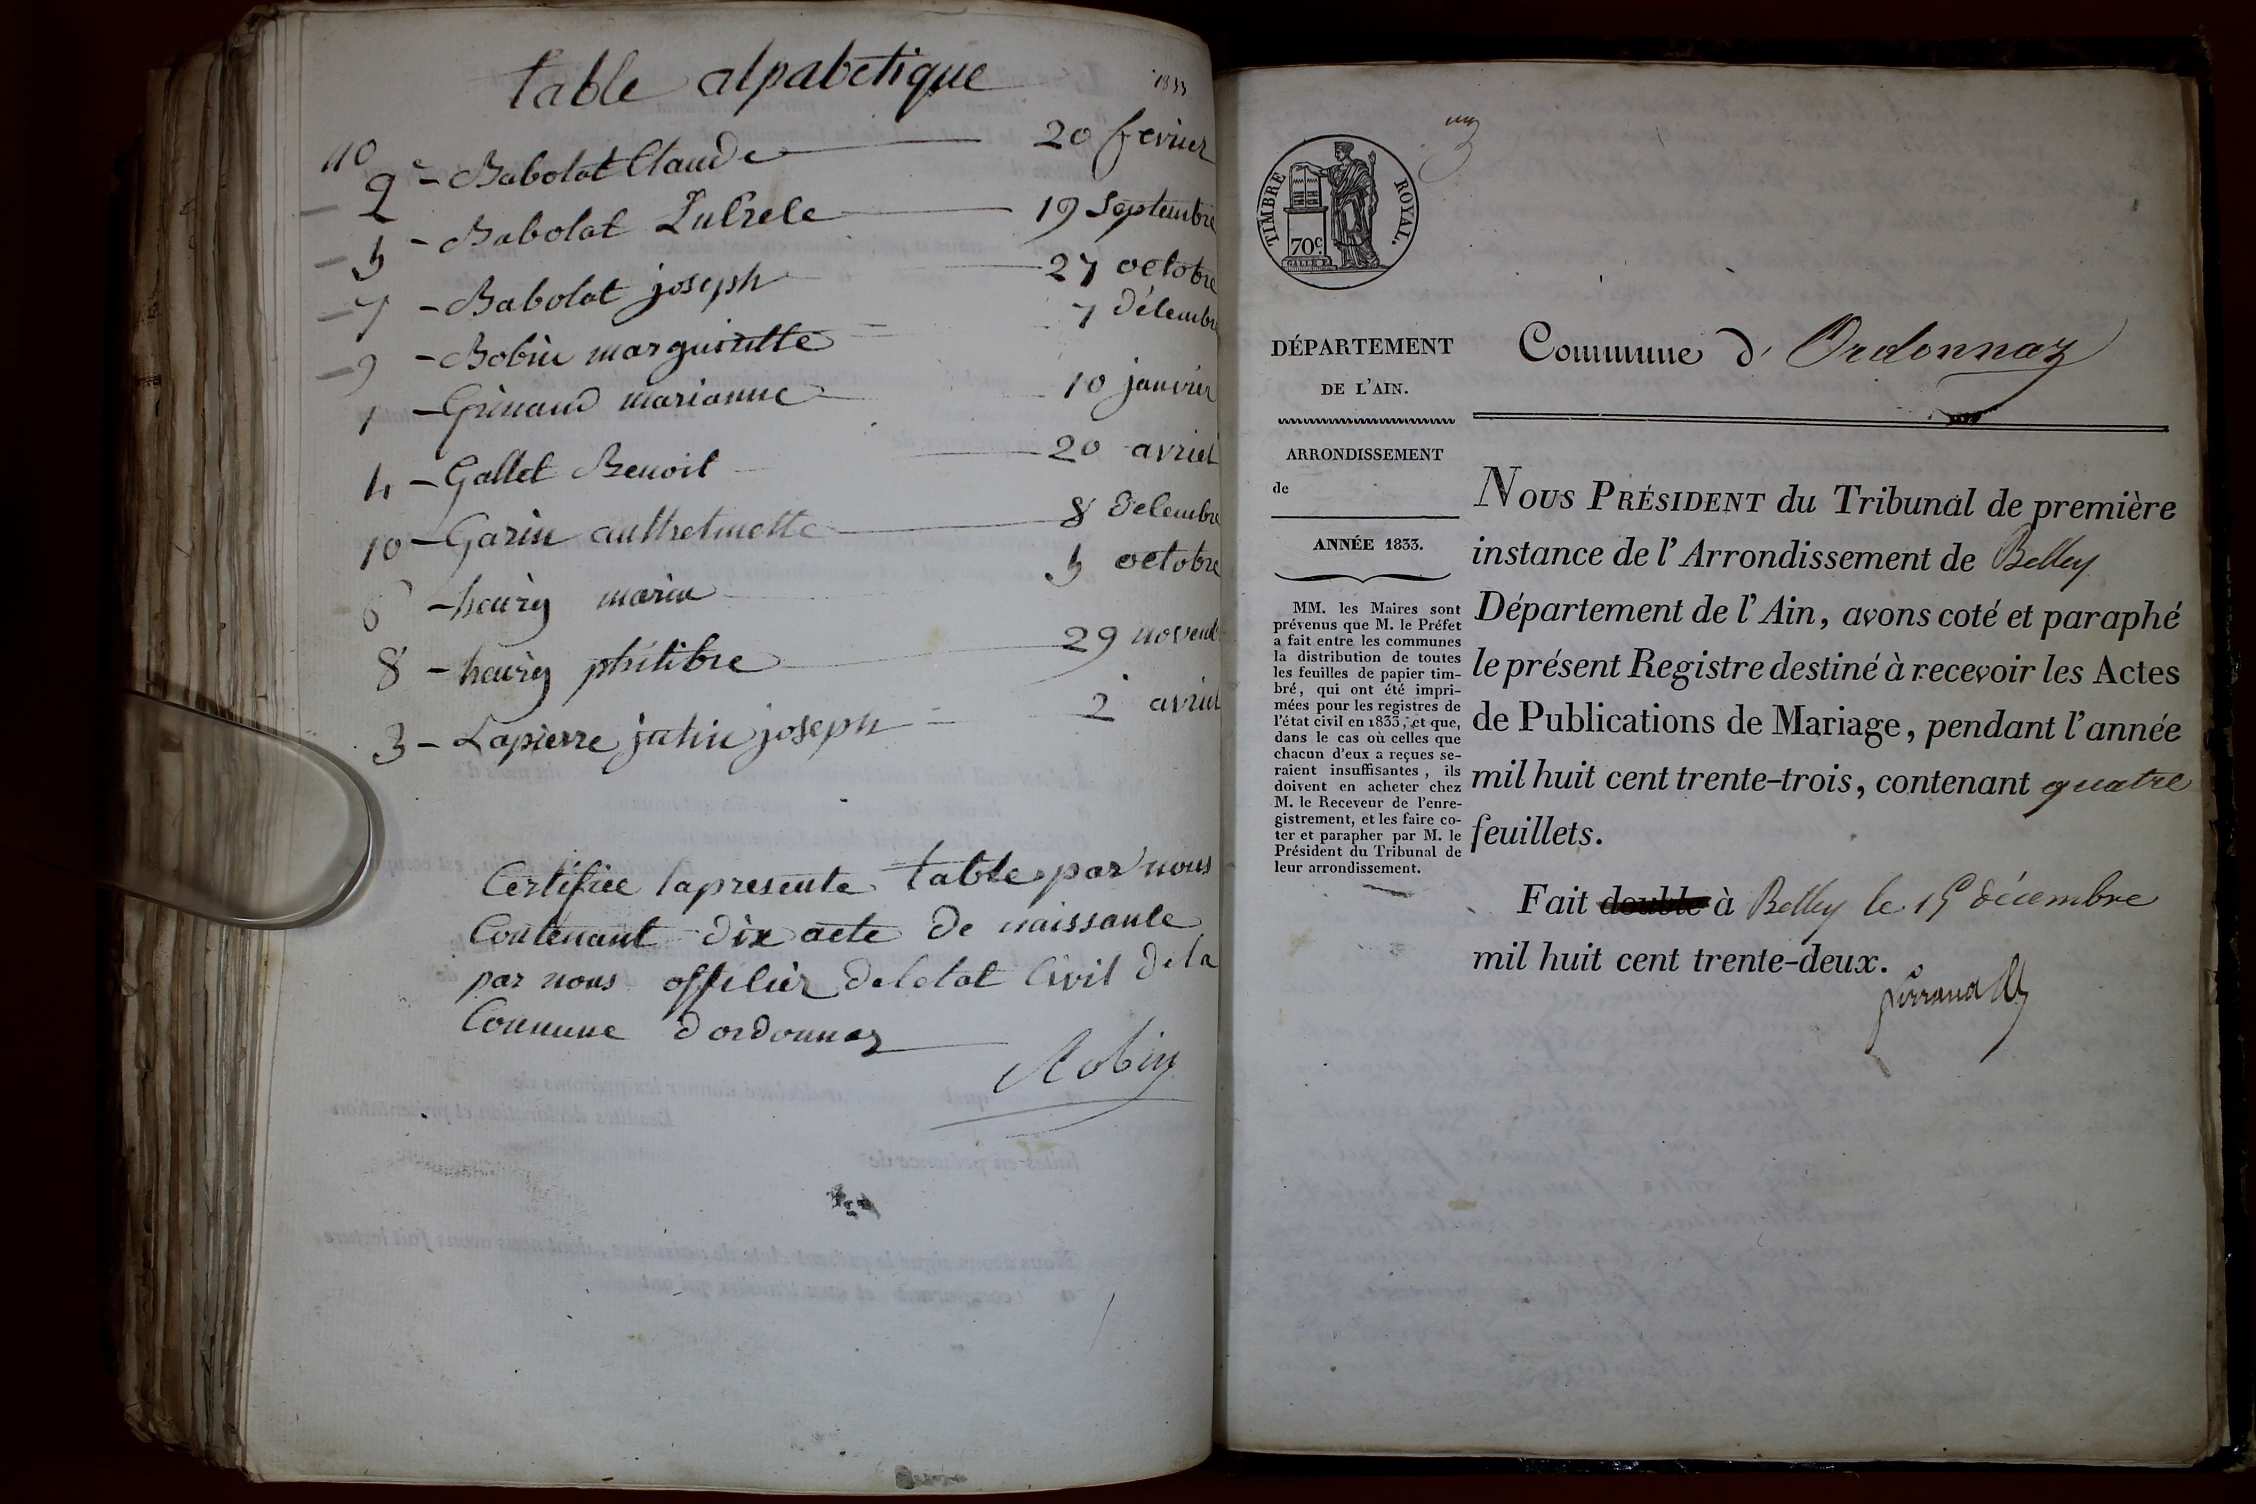 table alpabetique 1833
no
2 - Babolat Claude 20 fevrier
5 - Babolat 19 Septembre
7 - Babolat joseph 27 octobre
9 - Bobin margueritte 7 décembre
1 - Grinand marianne 10 janvier
4 - Gallet Benoit 20 avriel
10 - Garin anthelmette 8 decembre
6 - henry marie 5 octobre
8 - henry philibre 29 novemb
3 - Lapierre jahin joseph 2 avriel
Certifiee lapresente table par nous
Contenant dix acte de naissance
par nous officier deletat Civil dela
Commune dordonnaz
Robin
TIMBRE ROYAL.
70c.
DÉPARTEMENT
DE L'AIN.
ARRONDISSEMENT
de
ANNÉE 1833.
MM. les Maires sont
prévenus que M. le Préfet
a fait entre les communes
la distribution de toutes
les feuilles de papier tim-
bré, qui ont été impri-
mées pour les registres de
l'état civil en 1833, et que,
dans le cas où celles que
chacun d'eux a reçues se-
raient insuffisantes, ils
doivent en acheter chez
M. le Receveur de l'enre-
gistrement, et les faire co-
ter et parapher par M. le
Président du Tribunal de
leur arrondissement.
Commune d'Ordonnaz
NOUS PRÉSIDENT du Tribunal de première
instance de l'Arrondissement de Belley
Département de l'Ain, avons coté et paraphé
le présent Registre destiné à recevoir les Actes
de Publications de Mariage, pendant l'année
mil huit cent trente-trois, contenant quatre
feuillets.
Fait double à Belley le 15 décembre
mil huit cent trente-deux.